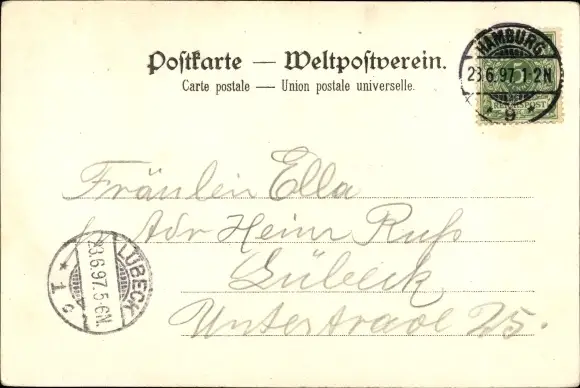 Postkarte — Weltpostverein.
Carte postale — Union postale universelle.
HAMBURG
23.6.97.1-2N
* 9 *
5
REICHSPOST
Fräulein Ella
Adr Heinr Ruß
Lübeck
Untertrave 25.
LÜBECK
23.6.97.5-6N
* 1